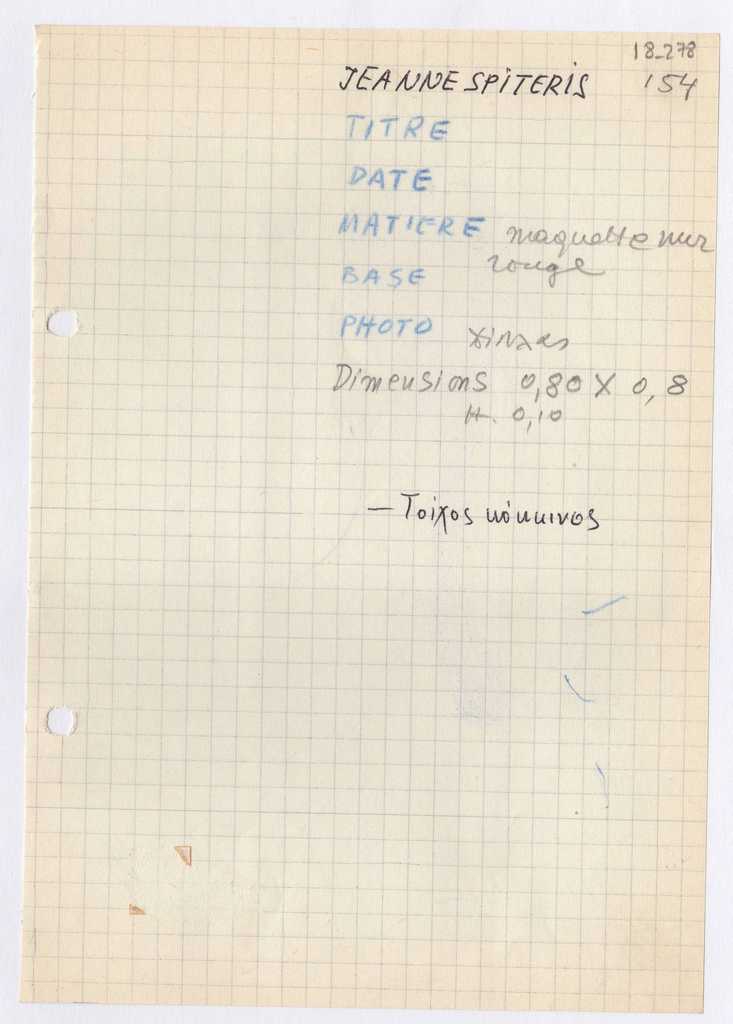 18_278
JEANNE SPITERIS 154
TITRE
DATE
MATIERE maquette mur
rouge
BASE
PHOTO
Dimensions 0,80 X 0,8
H. 0,10
— Τοίχος κόκκινος